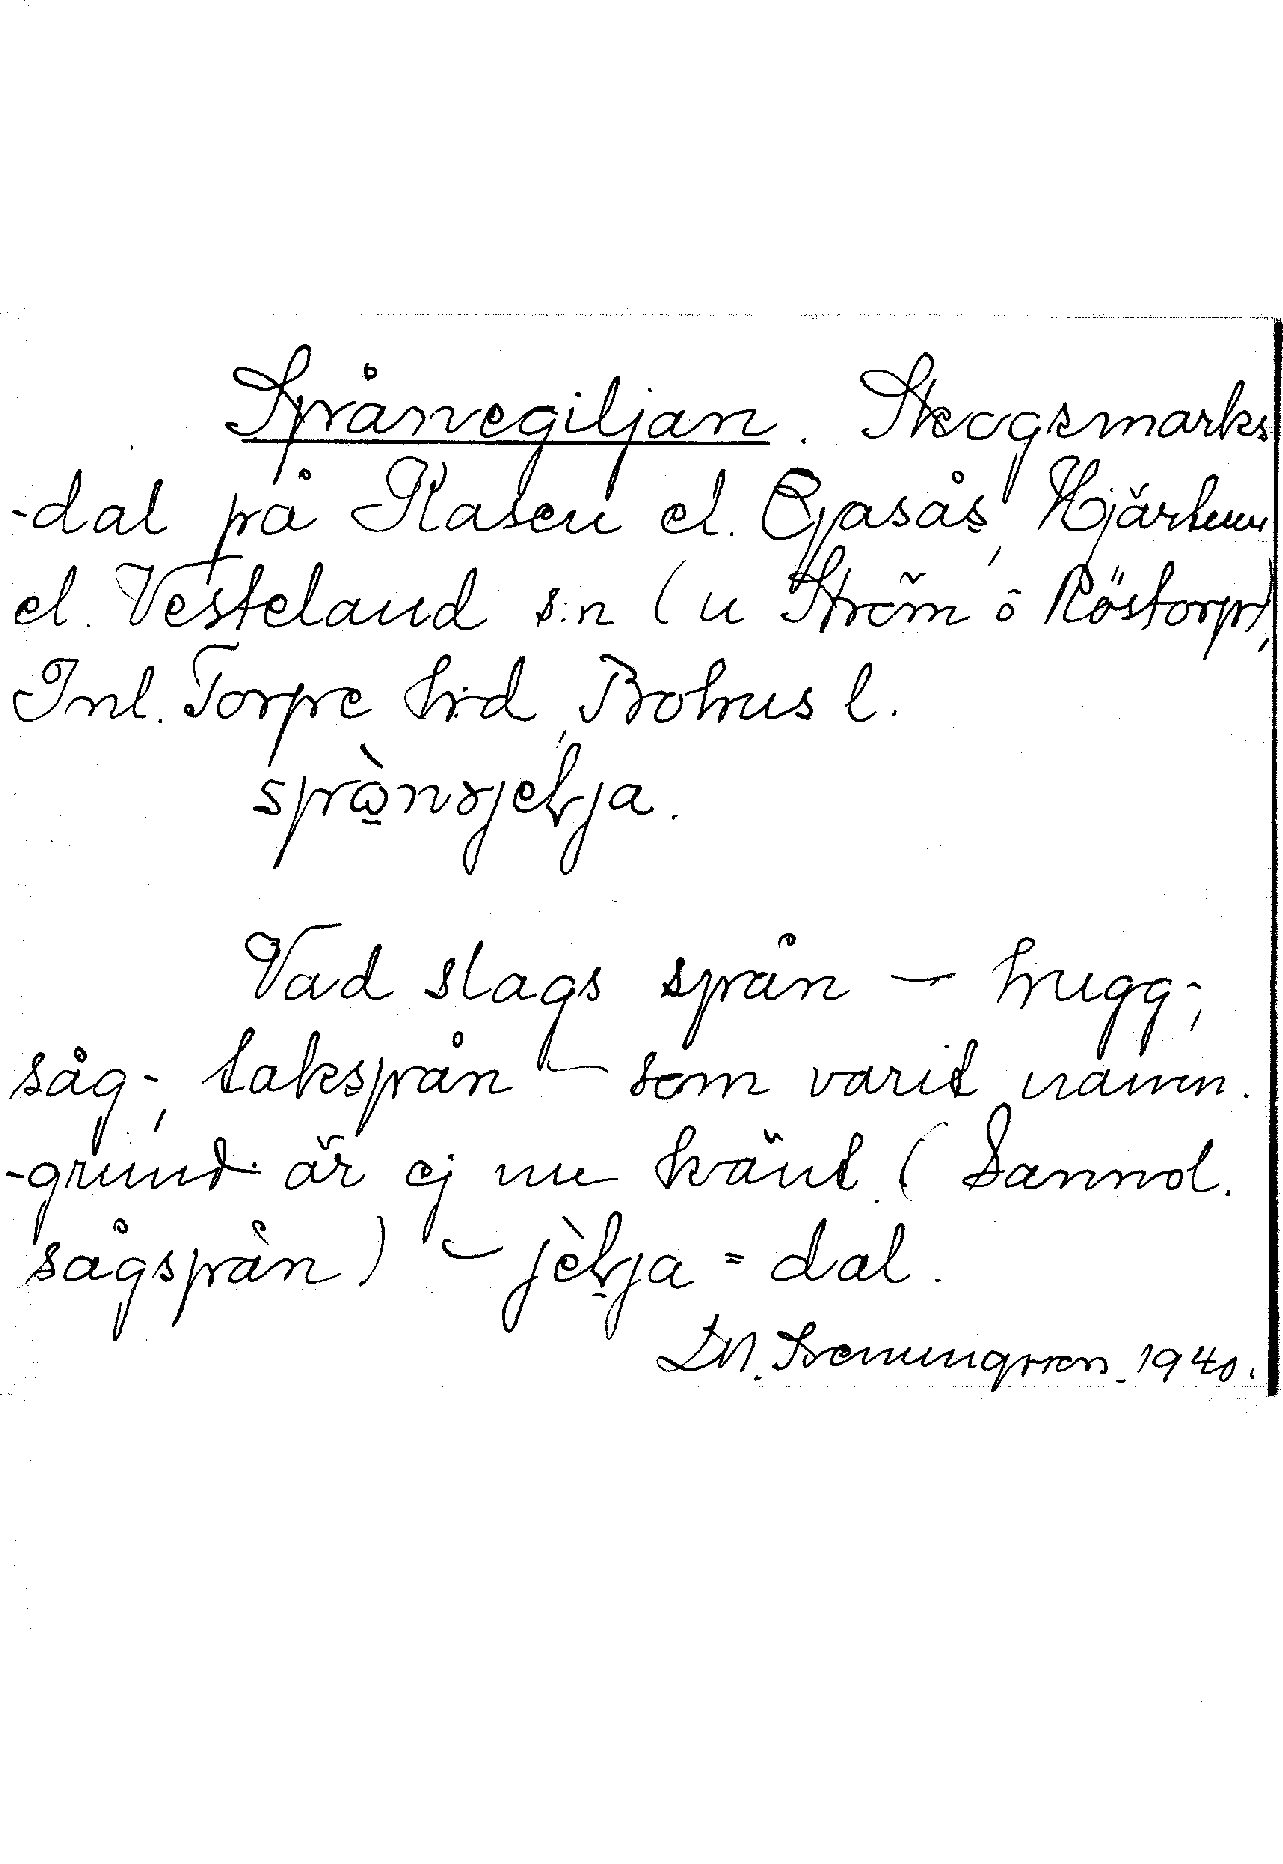 Spånegiljan. Skogsmarks
-dal på Kasen el. Gjasås, Hjärtum
el. Vesteland s:n (u Ström o Röstorp),
Inl. Torpe h:d, Bohus l.
Vad slags spån – hugg-,
såg-, takspån – som varit namn-
-grund är ej nu känt. (Sannol.
sågspån) – jèlja = dal.
1940.